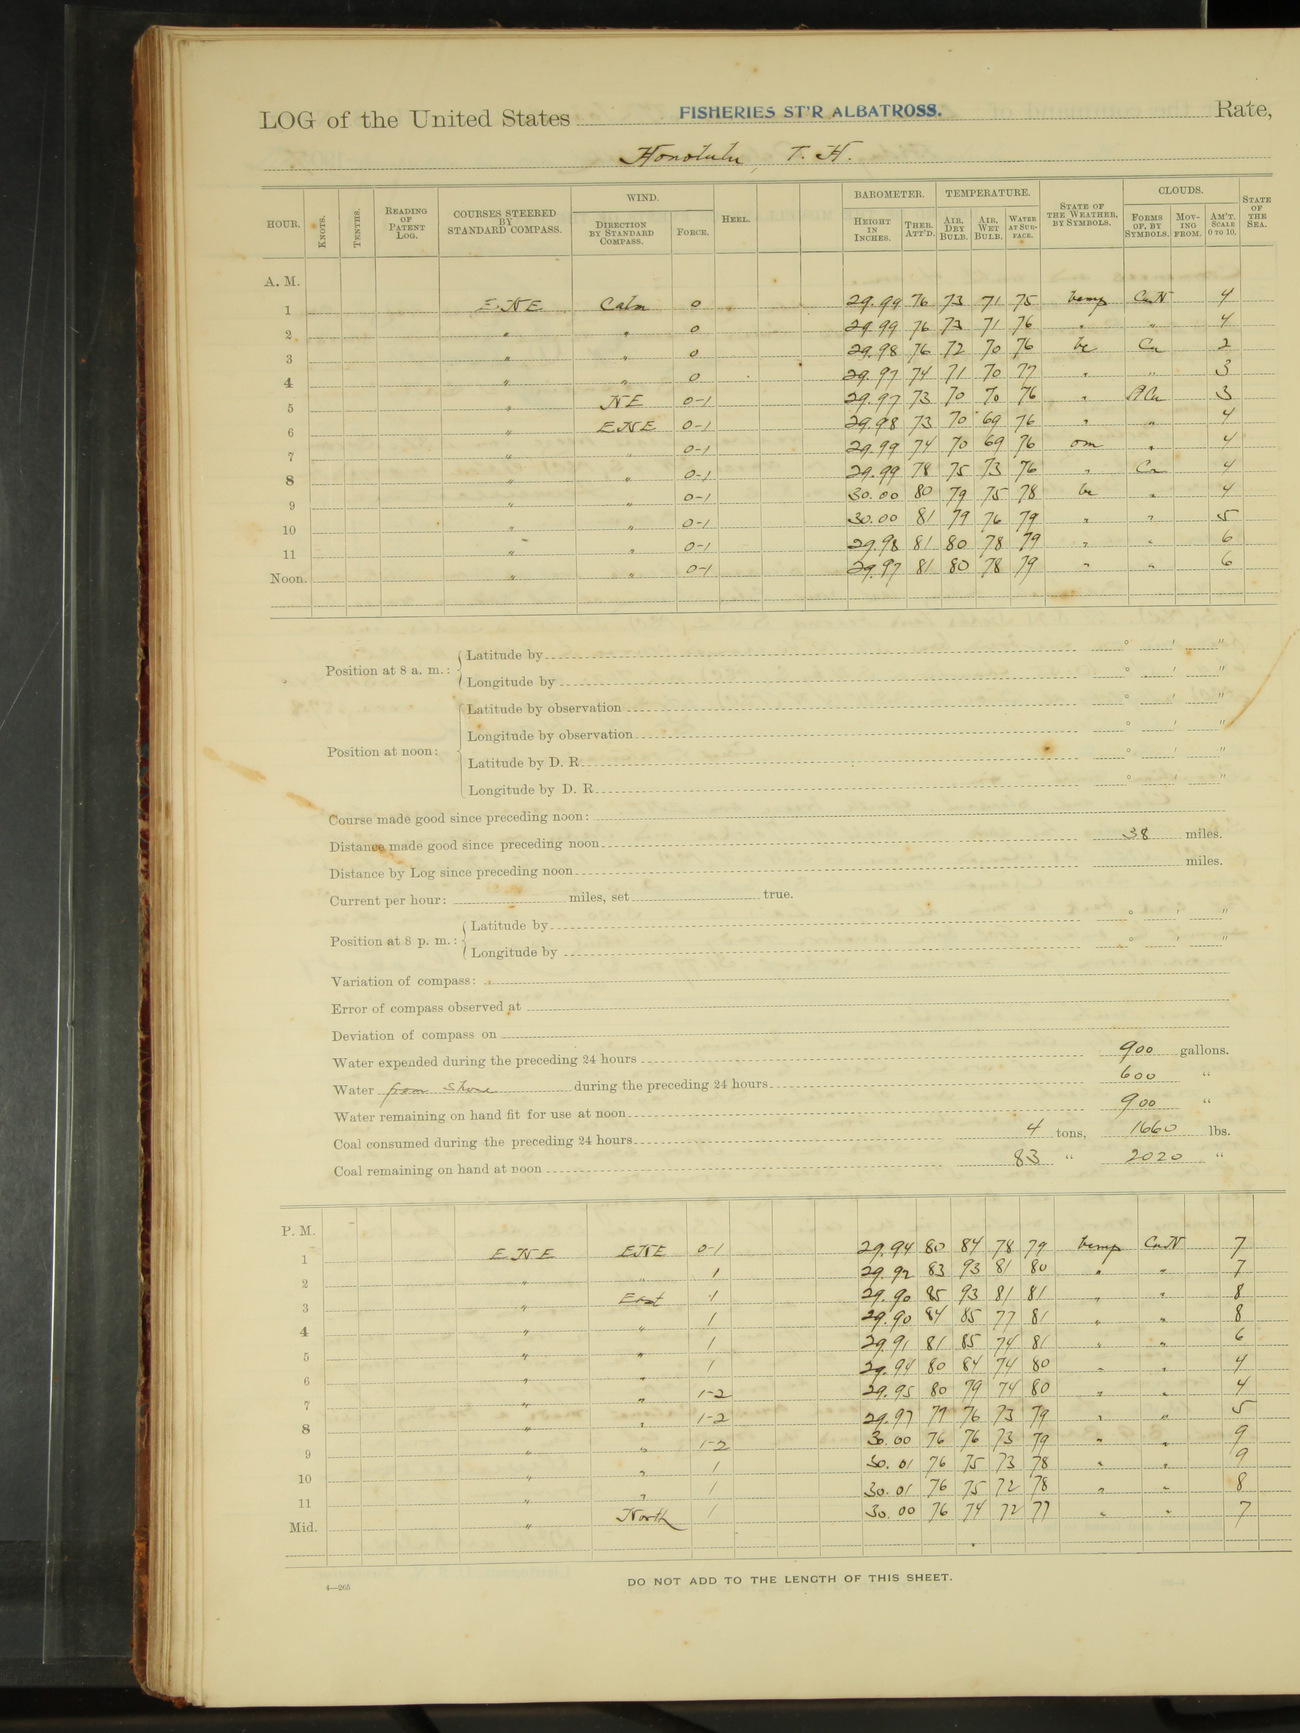 LOG of the United States FISHERIES ST'R ALBATROSS. Rate,
Honolulu, T. H.
HOUR. KNOTS. TENTHS. READING OF PATENT LOG. COURSES STEERED BY STANDARD COMPASS. WIND. DIRECTION BY STANDARD COMPASS. FORCE. HEEL. BAROMETER. HEIGHT IN INCHES. THER. ATT'D. TEMPERATURE. AIR, DRY BULB. AIR, WET BULB. WATER AT SURFACE. STATE OF THE WEATHER, BY SYMBOLS. CLOUDS. FORMS OF, BY SYMBOLS. MOVING FROM. AM'T. SCALE 0 TO 10. STATE OF THE SEA.
A. M.
1 E.N.E. Calm 0 29.99 76 73 71 75 bcmp CuN 4
2 " " 0 29.99 76 73 71 76 " " 4
3 " " 0 29.98 76 72 70 76 bc Cu 2
4 " " 0 29.97 74 71 70 77 " " 3
5 " NE 0-1 29.97 73 70 70 76 " 3
6 " ENE 0-1 29.98 73 70 69 76 " " 4
7 " " 0-1 29.99 74 70 69 76 om " 4
8 " " 0-1 29.99 78 75 73 76 " Cu 4
9 " " 0-1 30.00 80 79 75 78 bc " 4
10 " " 0-1 30.00 81 79 76 79 " " 5
11 " " 0-1 29.98 81 80 78 79 " " 6
Noon. " " 0-1 29.97 81 80 78 79 " " 6
Position at 8 a. m.: Latitude by ° ' "
Longitude by ° ' "
Position at noon: Latitude by observation ° ' "
Longitude by observation ° ' "
Latitude by D. R. ° ' "
Longitude by D. R. ° ' "
Course made good since preceding noon:
Distance made good since preceding noon 38 miles.
Distance by Log since preceding noon miles.
Current per hour: miles, set true.
Position at 8 p. m.: Latitude by ° ' "
Longitude by ° ' "
Variation of compass:
Error of compass observed at
Deviation of compass on
Water expended during the preceding 24 hours 900 gallons.
Water from shore during the preceding 24 hours 600 "
Water remaining on hand fit for use at noon 900 "
Coal consumed during the preceding 24 hours 4 tons, 1660 lbs.
Coal remaining on hand at noon 83 " 2020 "
P. M.
1 E N E ENE 0-1 29.94 80 84 78 79 bcmp CuN 7
2 " " 1 29.92 83 93 81 80 " " 7
3 " East 1 29.90 85 93 81 81 " " 8
4 " " 1 29.90 84 85 77 81 " " 8
5 " " 1 29.91 81 85 74 81 " " 6
6 " " 1 29.94 80 84 74 80 " " 4
7 " " 1-2 29.95 80 79 74 80 " " 4
8 " " 1-2 29.97 77 76 73 79 " " 5
9 " " 1-2 30.00 76 76 73 79 " " 9
10 " " 1 30.01 76 75 73 78 " " 9
11 " " 1 30.01 76 75 72 78 " " 8
Mid. " North 1 30.00 76 74 72 77 " " 7
4—265
DO NOT ADD TO THE LENGTH OF THIS SHEET.